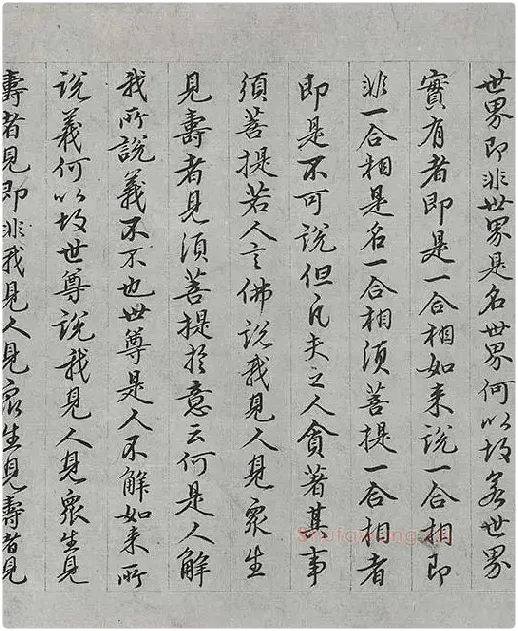 世界即非世界是名世界何以故若世界
實有者即是一合相如来說一合相即
非一合相是名一合相須菩提一合相者
即是不可說但凡夫之人貪著其事
須菩提若人言佛說我見人見眾生
見壽者見須菩提於意云何是人解
我所說義不不也世尊是人不解如来所
說義何以故世尊說我見人見眾生見
壽者見即非我見人見眾生見壽者見